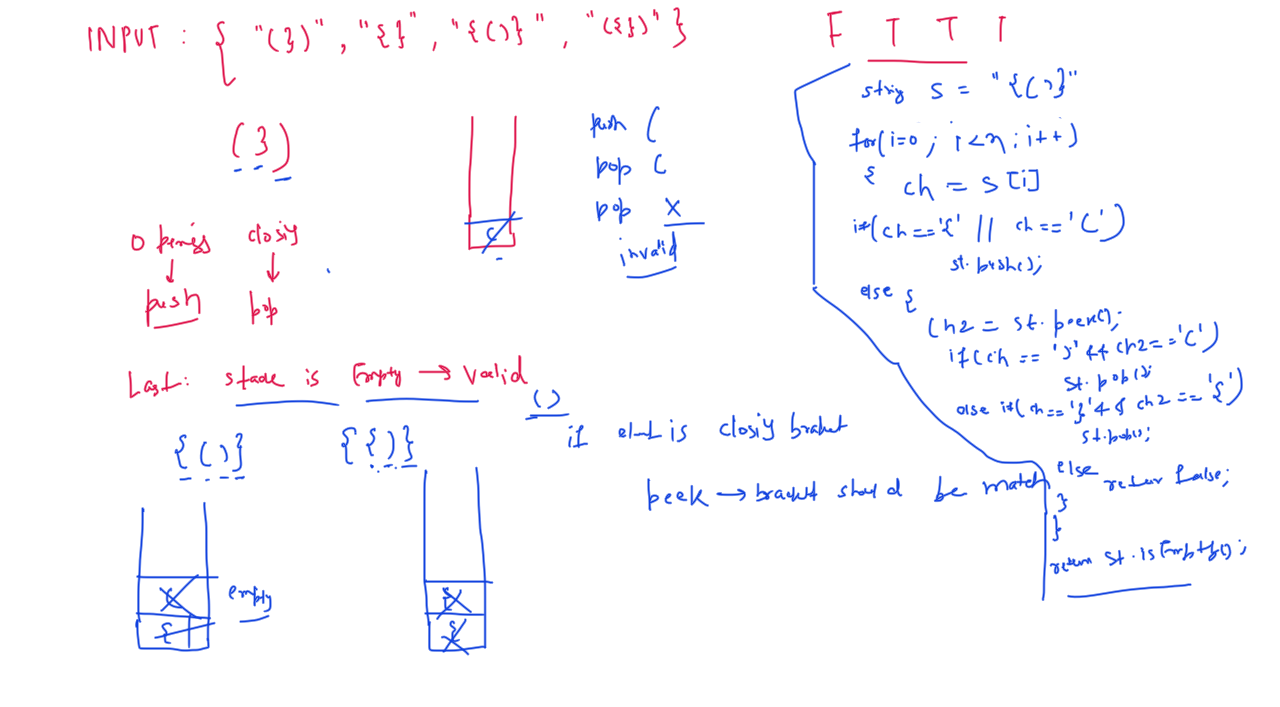 INPUT : { "(})", "{}", "{()}", "({})" }
F T T T
(})
openings closing
push pop
push (
pop (
pop X
invalid
Last: stack is Empty → valid
{()} {{)}
()
if el-t is closing bracket
peek → bracket should be match
empty
string s = "{()}"
for(i=0; i<n; i++)
{ ch = s[i]
if(ch=='{' || ch=='(')
st.push();
else {
ch2 = st.peek();
if(ch == ')' && ch2=='(')
st.pop();
else if(ch=='}' && ch2 == '{')
st.pop();
else return false;
}
}
return st.isEmpty();